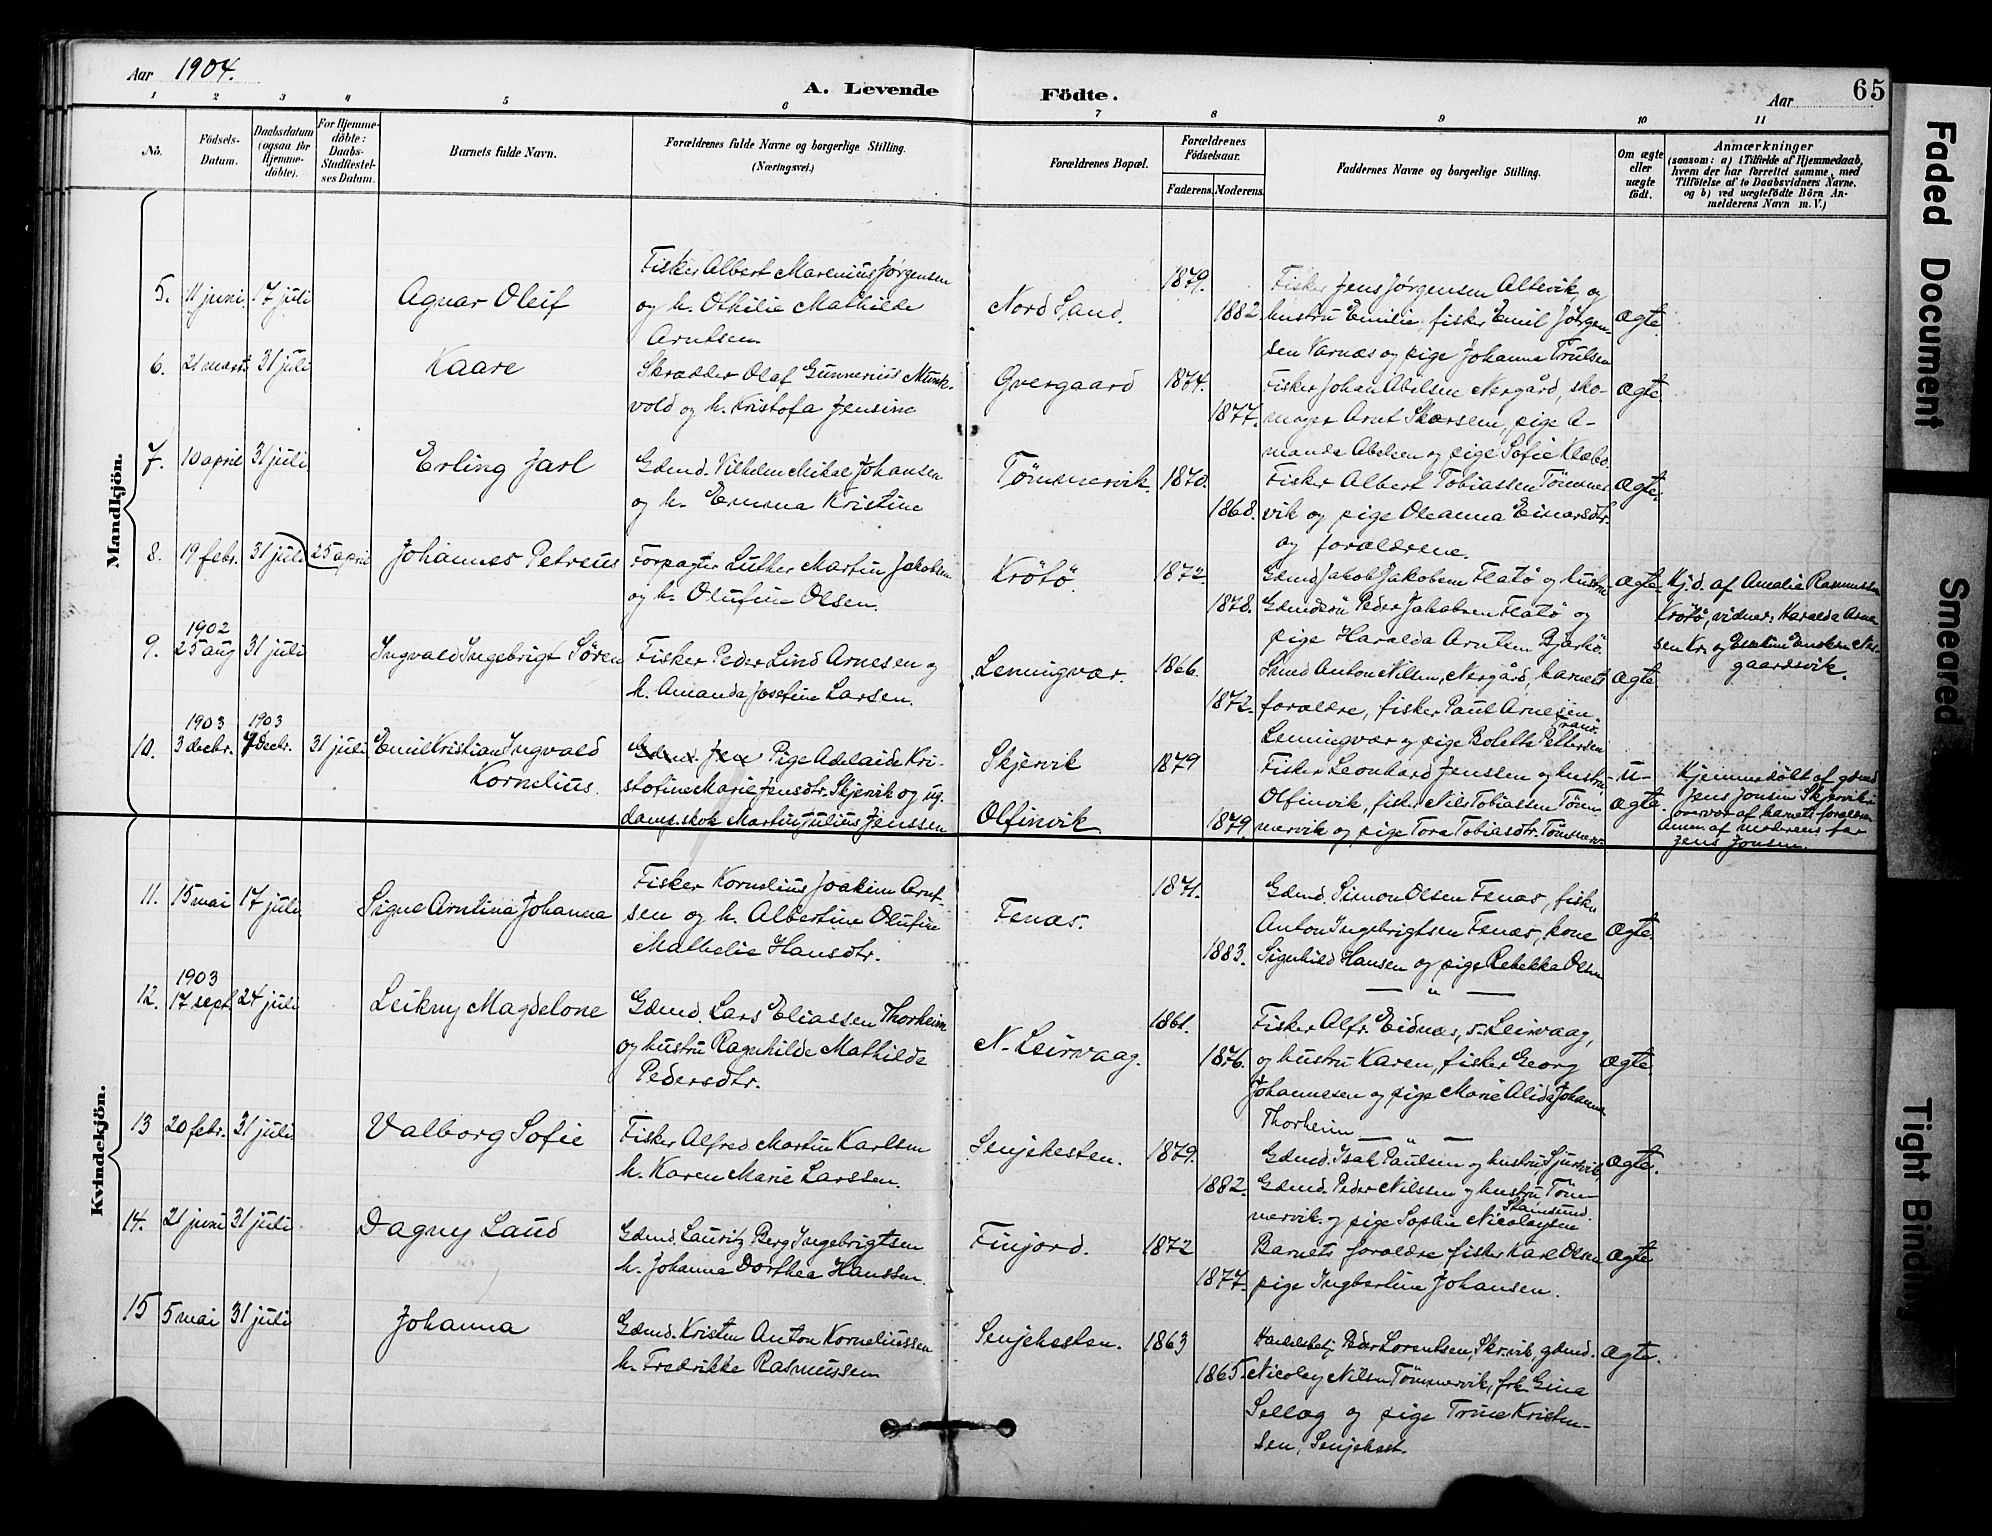 Aar 1904.
A. Levende Födte.
Aar
65
1 2 3 4 5 6 7 8 9 10 11
No.
Födsels-Datum.
Daabsdatum (ogsaa for Hjemme-döbte).
For Hjemme-döbte: Daabs-Stadfæstel-ses Datum.
Barnets fulde Navn.
Forældrenes fulde Navne og borgerlige Stilling. (Næringsvei.)
Forældrenes Bopæl.
Forældrenes Födselsaar.
Faderens. Moderens.
Faddernes Navne og borgerlige Stilling.
Om ægte eller uægte födt.
Anmærkninger
(saasom: a) i Tilfælde af Hjemmedaab, hvem der har forrettet samme, med Tilföielse af to Daabsvidners Navne. og b) ved uægtefödte Börn An-melderens Navn m. V.)
Mandkjön.
5. 11 juni 17 juli
Agnar Oleif
Fisker Albert Marenius Jørgensen
og h. Othilie Mathilde
Arntsen
Nord Sand.
1879.
1882
Fisker Jens Jørgensen Altevik og
hustru Emilie, fisker Emil Jörgen
sen Varnæs og pige Johanna Trulsen
ægte.
6. 21 marts 31 juli
Kaare
Skrædder Olaf Gunnerius Munk-
vold og h. Kristofa Jensine
Gvergaard
1874.
1877.
Fisker Johan Abelsen Nergård, sko-
mager Arnt Skarsem, pige A-
manda Abelsen og pige Sofie Klæbo.
ægte.
7. 10 april 31 juli
Erling Jarl
Gdmd. Vilhelm Mikal Johansen
og h. Emma Kristine
Tömmervik.
1870.
1868.
Fisker Albert Tobiassen Tömmer
vik og pige Oleanna Einarsdtr.
og forældrene.
ægte.
8. 19 febr. 31 juli 25 april
Johannes Petreus
Forpagter Luther Martin Jakobsen
og h. Olufine Olsen.
Krötö.
1872.
1878.
Gdmd Jakob Jakobsen Flatö og hustru
Gdmdsön Peder Jakobsen Flatö og
pige Haralda Arntsen Bjarkö.
ægte.
Hj.d. af Amalie Rasmussen
Krötö, vidner: Haralda Arne
sen Kr. og
gaardsvik.
9. 1902 25 aug 31 juli
Ingvald Ingebrigt Sören
Fisker Peder Lind Arnesen og
h. Amanda Josefine Larsen.
Lemmingvær.
1866.
1872.
Smed Anton Nilsen, Nergård, barnets
forældre, fisker Paul Arnesen
Lemmingvær og pige Bolette Pettersen
Tranö.
ægte.
10. 1903 3 decbr. 1903 7 decbr. 31 juli
Emil Kristian Ingvald
Kornelius.
Gdmd. Jen Pige Adelaide Kri-
stofine Marie Jensdtr. Skjervik og ug.
dampskok Martin Julius Jenssen
Skjervik
Olfinvik
1879
1879.
Fisker Leonhard Jenssen og hustru
Olfinvik, fisker Nils Tobiassen Töm-
mervik og pige Tora Tobiasdtr. Tömmerv.
u-
ægte.
Hjemmedöbt af gdmd
Jens Jonsen Skjervik i
overvær af barnets forældre.
Anm. af moderens far
Jens Jonsen.
Kvindekjön.
11. 15 mai 17 juli
Signe Arntina Johanna
Fisker Kornelius Joakim Arnt-
sen og h. Albertine Olufine
Mathelie Hansdtr.
Fenæs.
1871.
1883.
Gdmd. Simon Olsen Fenæs, fisker
Anton Ingebrigtsen Fenæs, kone
Signhild Hansen og pige Rebekka Olsen
— " —
ægte.
12. 1903 17 sept. 24 juli
Leikny Magdelone
Gdmd. Lars Eliassen Thorheim
og hustru Ragnhilde Mathilde
Pedersdtr.
N. Leirvaag.
1861.
1876.
Fisker Alfr. Eidnæs, s. Leirvaag,
og hustru Karen, fisker Georg
Johannesen og pige Marie Alida Johanna
Thorheim — " —
ægte.
13 20 febr. 31 juli
Valborg Sofie
Fisker Alfred Martin Karlsen
h. Karen Marie Larssen.
Senjehesten.
1879.
1882.
Gdmd. Isak Paulsen og hustru Sjursvik,
Gdmd. Peder Nilssen og hustru Töm-
mervik og pige Sophie Nicolaysen
Stamsund.
ægte.
14. 21 juni 31 juli
Dagny Laud
Gdmd. Lauritz Berg Ingebrigtsen
h. Johanna Dorthea Hanssen.
Finjord.
1872
1877.
Barnets forældre fisker Karl Olsen
pige Ingbertine Johansen.
ægte
15 5 mai 31 juli
Johanna
Gdmd. Kristen Anton Korneliussen
h. Fredrikke Rasmussen
Senjehesten.
1863
1865.
Handelsbetj. Peder Lorentsen, Skrvik, gdmd.
Nicolay Nilsen Tömmervik, frk. Gina
Sellæg og pige Trine Kristen-
sen, Senjehest.
ægte.
Faded Document
Smeared
Tight Binding